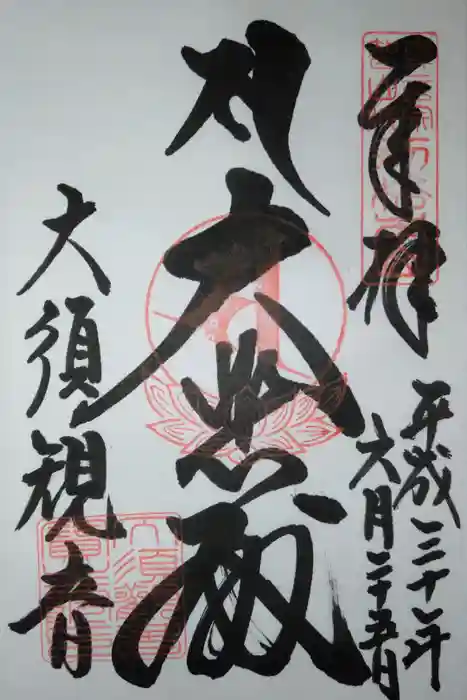 奉拝
平成三十年
六月二十五日
大悲殿
大須観音